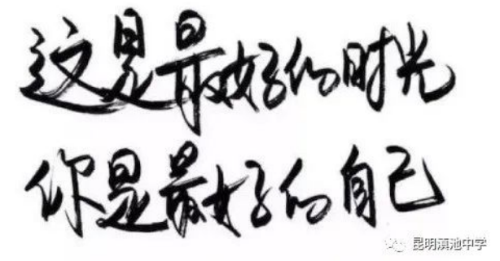 这是最好的时光
你是最好的自己
昆明滇池中学